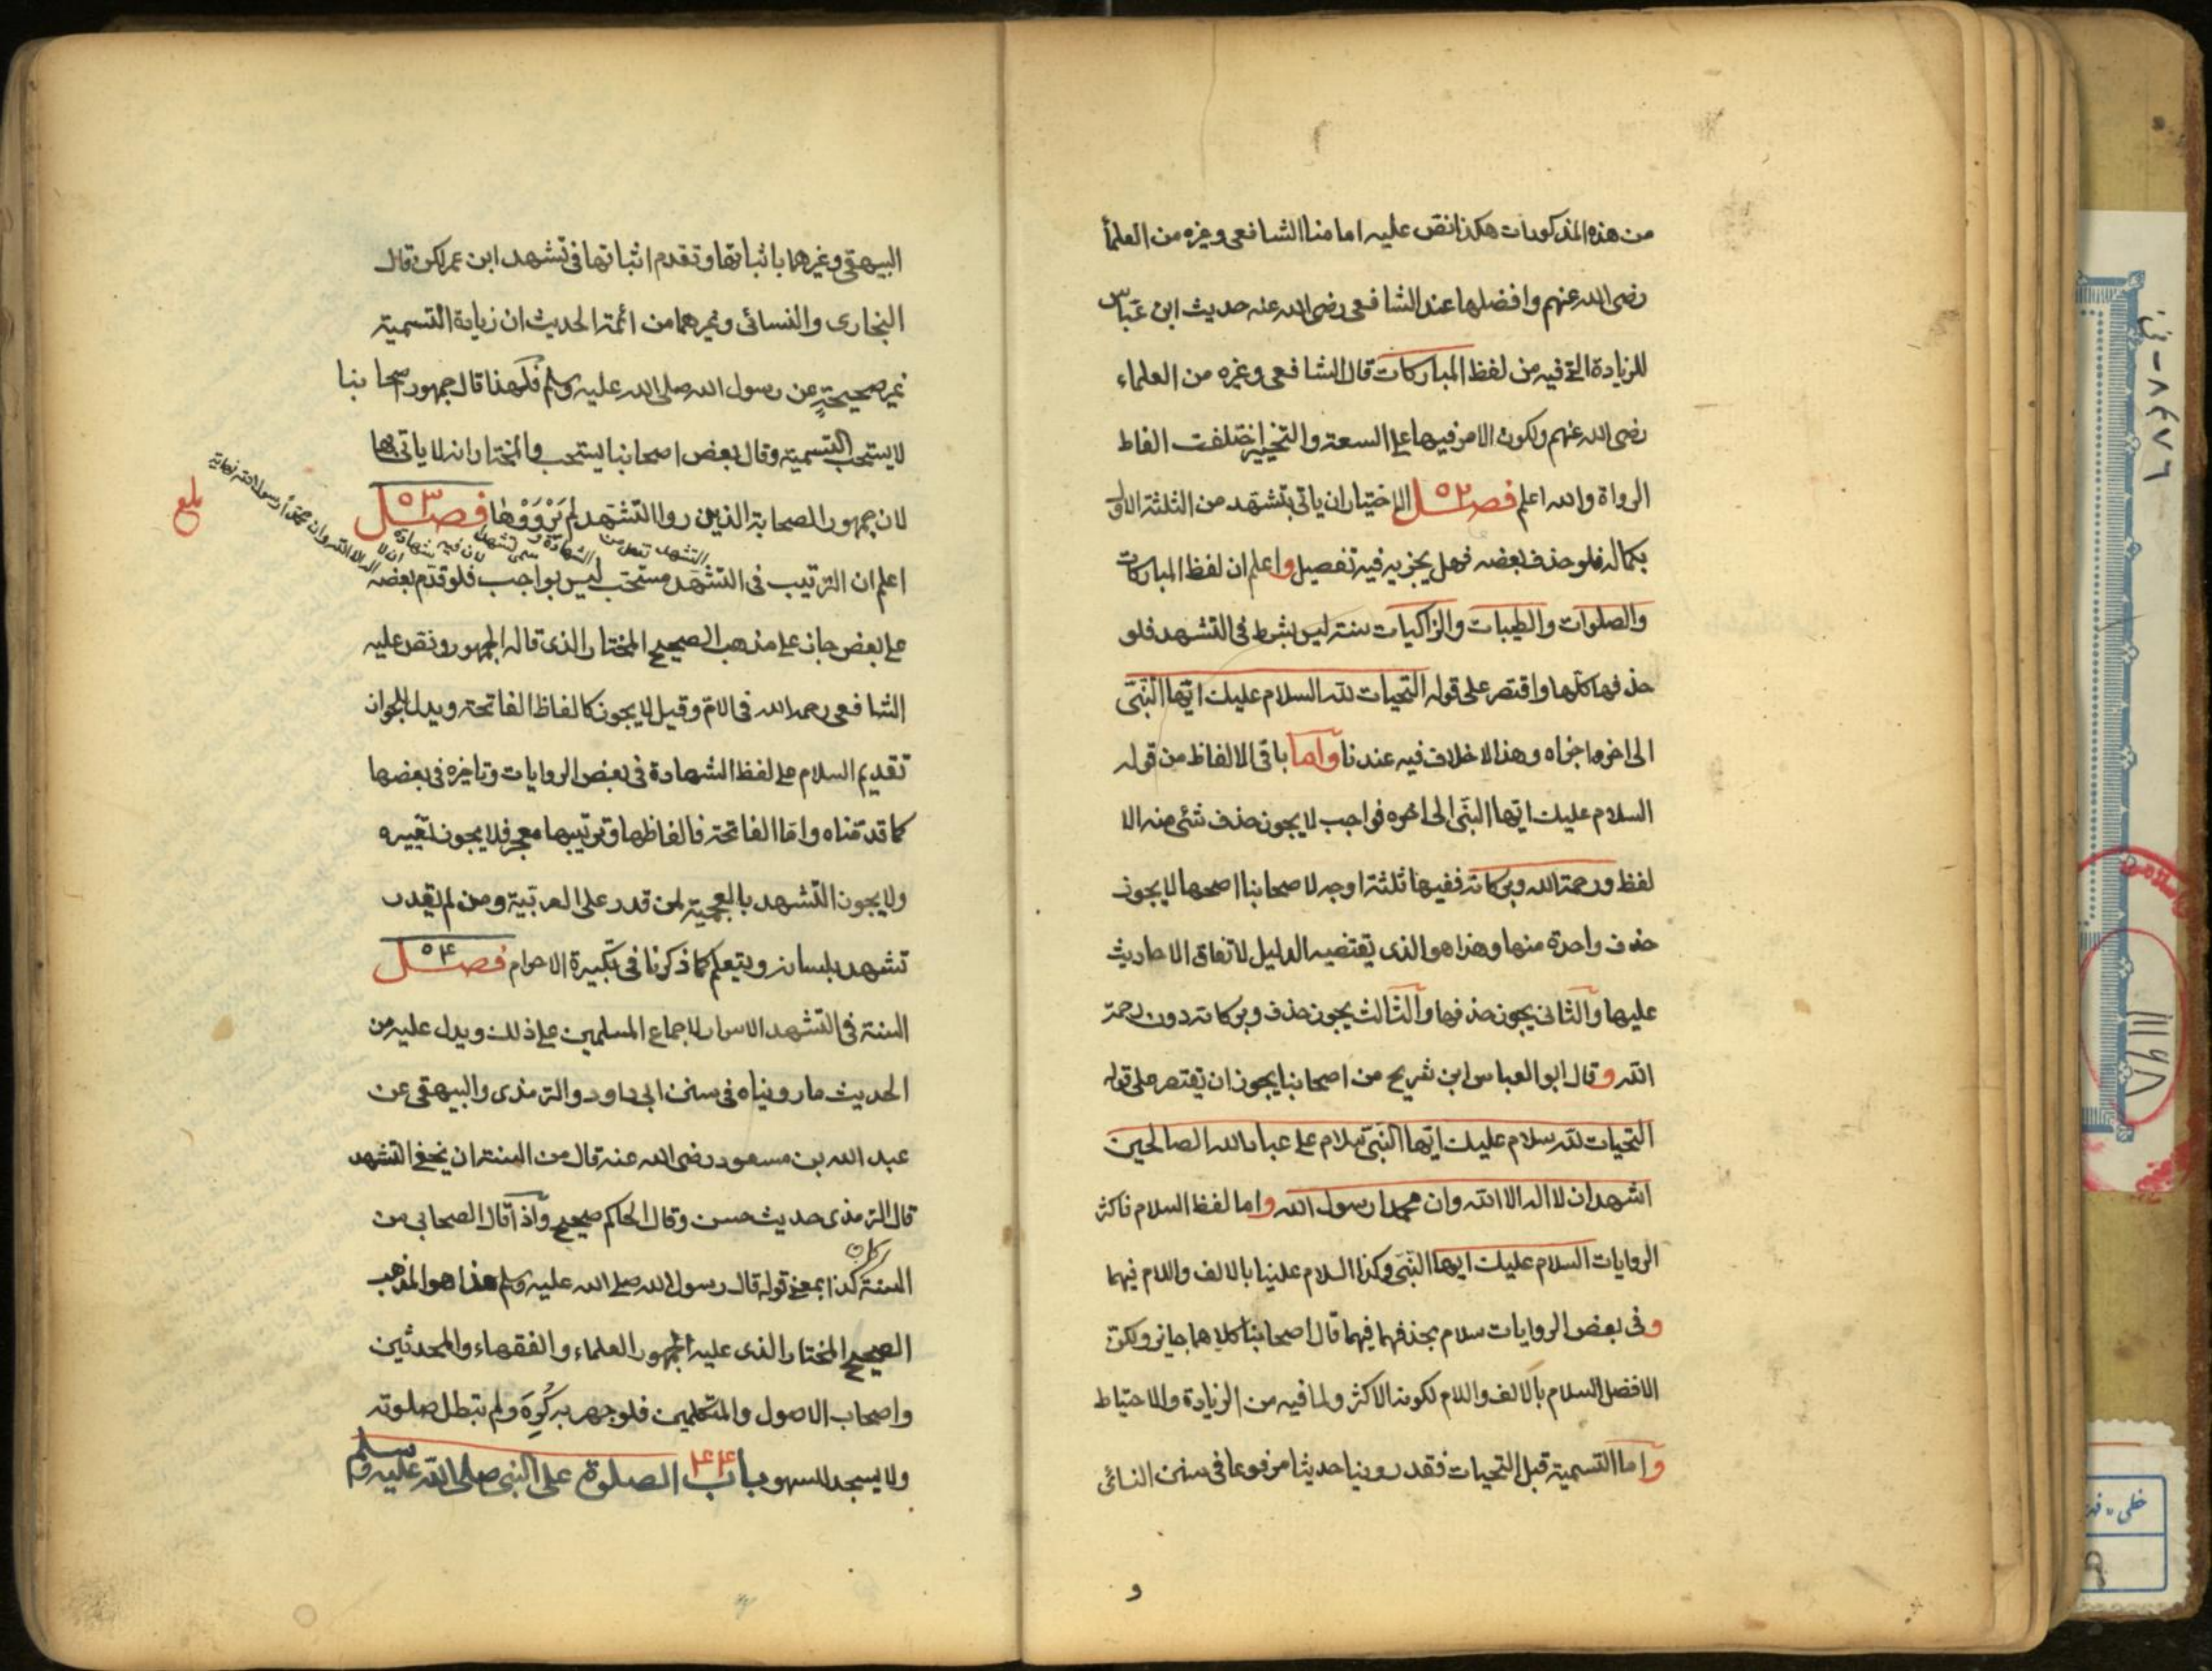 من هذه المذكورات هكذا نص عليه امامنا الشافعى وغيره من العلمأ
رضى الله عنهم وافضلها عند الشافعى رضى الله عنه حديث ابن عباس
للزيادة التى فيه من لفظ المباركات قال الشافعى وغيره من العلماء
رضى الله عنهم ولكون الامر فيها على السعة والتخيير اختلفت الفاظ
الرواة والله اعلم فصل ٥٢ الاختيار ان ياتى بتشهد من الثلثة الاول
بكماله فلو حذف بعضه فهل يجزيه فيه تفصيل واعلم ان لفظ المباركات
والصلوات والطيبات والزاكيات سنة ليس بشرط فى التشهد فلو
حذفها كلها واقتصر على قوله التحيات لله السلام عليك ايها النبى
الى اخره اجزاه وهذا لا خلاف فيه عندنا واما باقى الالفاظ من قوله
السلام عليك ايها النبى الى اخره فواجب لا يجوز حذف شئ منه الا
لفظ ورحمة الله وبركاته ففيها ثلثة اوجه لاصحابنا اصحها لا يجوز
حذف واحدة منها وهذا هو الذى يقتضيه الدليل لاتفاق الاحاديث
عليها والثانى يجوز حذفها والثالث يجوز حذف وبركاته دون رحمة
الله وقال ابو العباس ابن شريح من اصحابنا يجوز ان يقتصر على قوله
التحيات لله سلام عليك ايها النبى سلام على عباد الله الصالحين
اشهد ان لا اله الا الله وان محمدا رسول الله واما لفظ السلام فاكثر
الروايات السلام عليك ايها النبى وكذا السلام علينا بالالف واللام فيهما
وفى بعض الروايات سلام بحذفهما فيهما قال اصحابنا كلاهما جايز ولكن
الافضل السلام بالالف واللام لكونه الاكثر ولما فيه من الزيادة والاحتياط
واما التسمية قبل التحيات فقد روينا حديثا مرفوعا فى سنن النسائى
و
البيهقى وغيرهما باثباتها وتقدم اثباتها فى تشهد ابن عمر لكن قال
البخارى والنسائى وغيرهما من ائمة الحديث ان زيادة التسمية
غير صحيحة عن رسول الله صلى الله عليه وسلم فلهذا قال جمهور اصحابنا
لا يستحب التسمية وقال بعض اصحابنا يستحب والمختار انه لا ياتى بها
لان جمهور الصحابة الذين رووا التشهد لم يَرْوَوْها فصل ٥٣
التشهد تفعل من الشهادة و سمى تشهد لان فيه شهادة ان لا اله الا الله وان محمدا رسول الله نهاية
بلغ
اعلم ان الترتيب فى التشهد مستحب ليس بواجب فلو قدم بعضه
على بعض جاز على مذهب الصحيح المختار الذى قاله الجمهور ونص عليه
الشافعى رحمه الله فى الام وقيل لا يجوز كالفاظ الفاتحة ويدل للجواز
تقديم السلام على لفظ الشهادة فى بعض الروايات وتاخيره فى بعضها
كما قدمناه واما الفاتحة فالفاظها وترتيبها معجز فلا يجوز تغييره
ولا يجوز التشهد بالعجمية لمن قدر على العربية ومن لم يقدر
تشهد بلسانه ويتعلم كما ذكرنا فى تكبيرة الاحرام فصل ٥٤
السنة فى التشهد الاسرار لاجماع المسلمين على ذلك ويدل عليه من
الحديث ما رويناه فى سنن ابى داود والترمذى والبيهقى عن
عبد الله بن مسعود رضى الله عنه قال من السنة ان يخفى التشهد
قال الترمذى حديث حسن وقال الحاكم صحيح واذا قال الصحابى من
كان
السنة كذا بمعنى قوله قال رسول الله صلى الله عليه وسلم هذا هو المذهب
الصحيح المختار الذى عليه الجمهور العلماء والفقهاء والمحدثين
واصحاب الاصول والمتكلمين فلو جهر به كُرِهَ ولم تبطل صلوته
ولا يسجد للسهو باب ٤٤ الصلوة على النبى صلى الله عليه وسلم